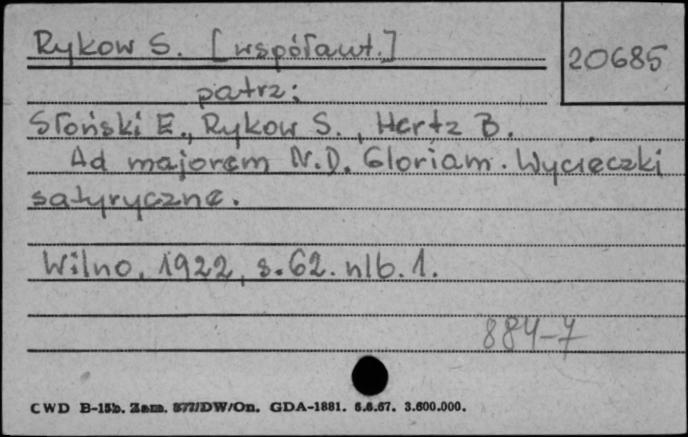 Rykow S. [współaut.]
20685
patrz:
Słoński E., Rykow S., Hertz B.
Ad majorem N.D. Gloriam. Wycieczki
satyryczne.
Wilno, 1922, s. 62. nlb. 1.
884-7
CWD B-15b. Zam. 577/DW/On. GDA-1881. 6.6.67. 3.600.000.